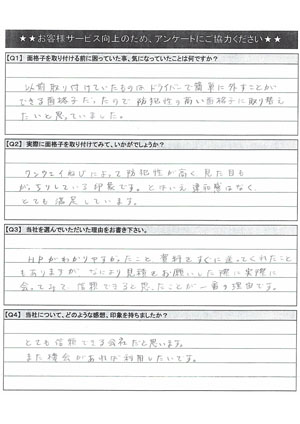 ★★お客様サービス向上のため、アンケートにご協力ください★★
【Q1】 面格子を取り付ける前に困っていた事、気になっていたことは何ですか?
以前取り付けていたものはドライバーで簡単に外すことが
できる面格子だったので防犯性の高い面格子に取り替え
たいと思っていました。
【Q2】 実際に面格子を取り付けてみて、いかがでしょうか?
ワンウェイねじによって防犯性が高く、見た目も
がっちりしている印象です。とはいえ違和感はなく、
とても満足しています。
【Q3】 当社を選んでいただいた理由をお書き下さい。
HPがわかりやすかったこと、資料をすぐに送ってくれたこと
もありますが、なにより見積をお願いした際に実際に
会ってみて信頼できると思ったことが一番の理由です。
【Q4】 当社について、どのような感想、印象を持ちましたか?
とても信頼できる会社だと思います。
また機会があれば利用したいです。